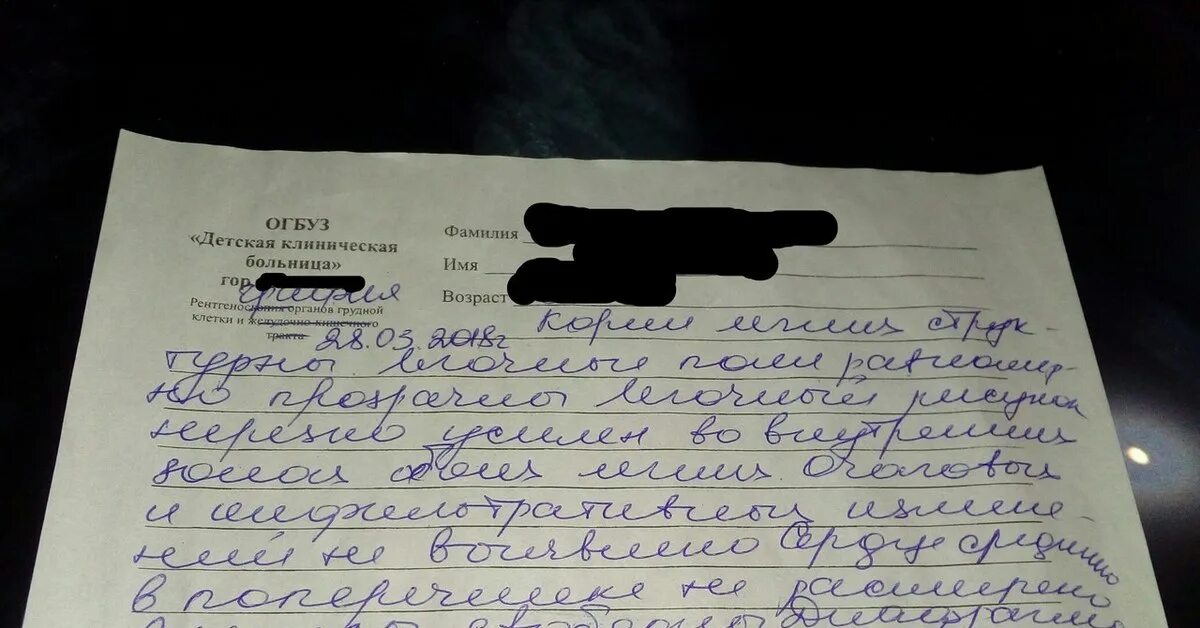 ОГБУЗ
«Детская клиническая
больница»
гор
Рентгеноскопия органов грудной
клетки и желудочно-кишечного
тракта
графия
28.03.2018г
Фамилия
Имя
Возраст
Корни легких струк-
турны легочные поли равномер-
но прозрачны легочный рисунок
нерезко усилен во внутренних
зонах обоих легких Очаговых
и инфильтративных измене-
ний не выявлено Сердце срединно
в поперечнике не расширено
свободны Диафрагма